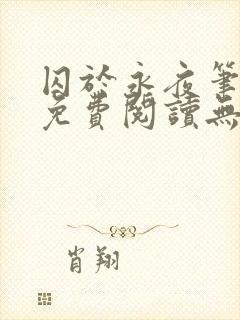 囚於永夜筆
免費閱讀無
肖翔